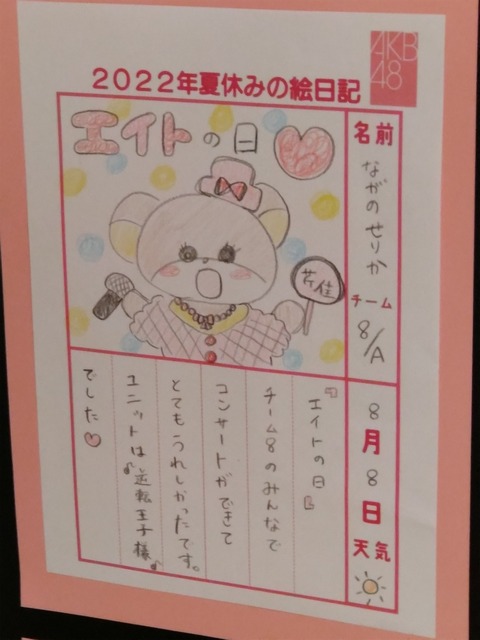 AKB
48
2022年夏休みの絵日記
エイトの日
名前
ながのせりか
チーム
8/A
芹佳
8月8日
天気
『エイトの日』
チーム8のみんなで
コンサートができて
とてもうれしかったです。
ユニットは♪逆転王子様♪
でした♡